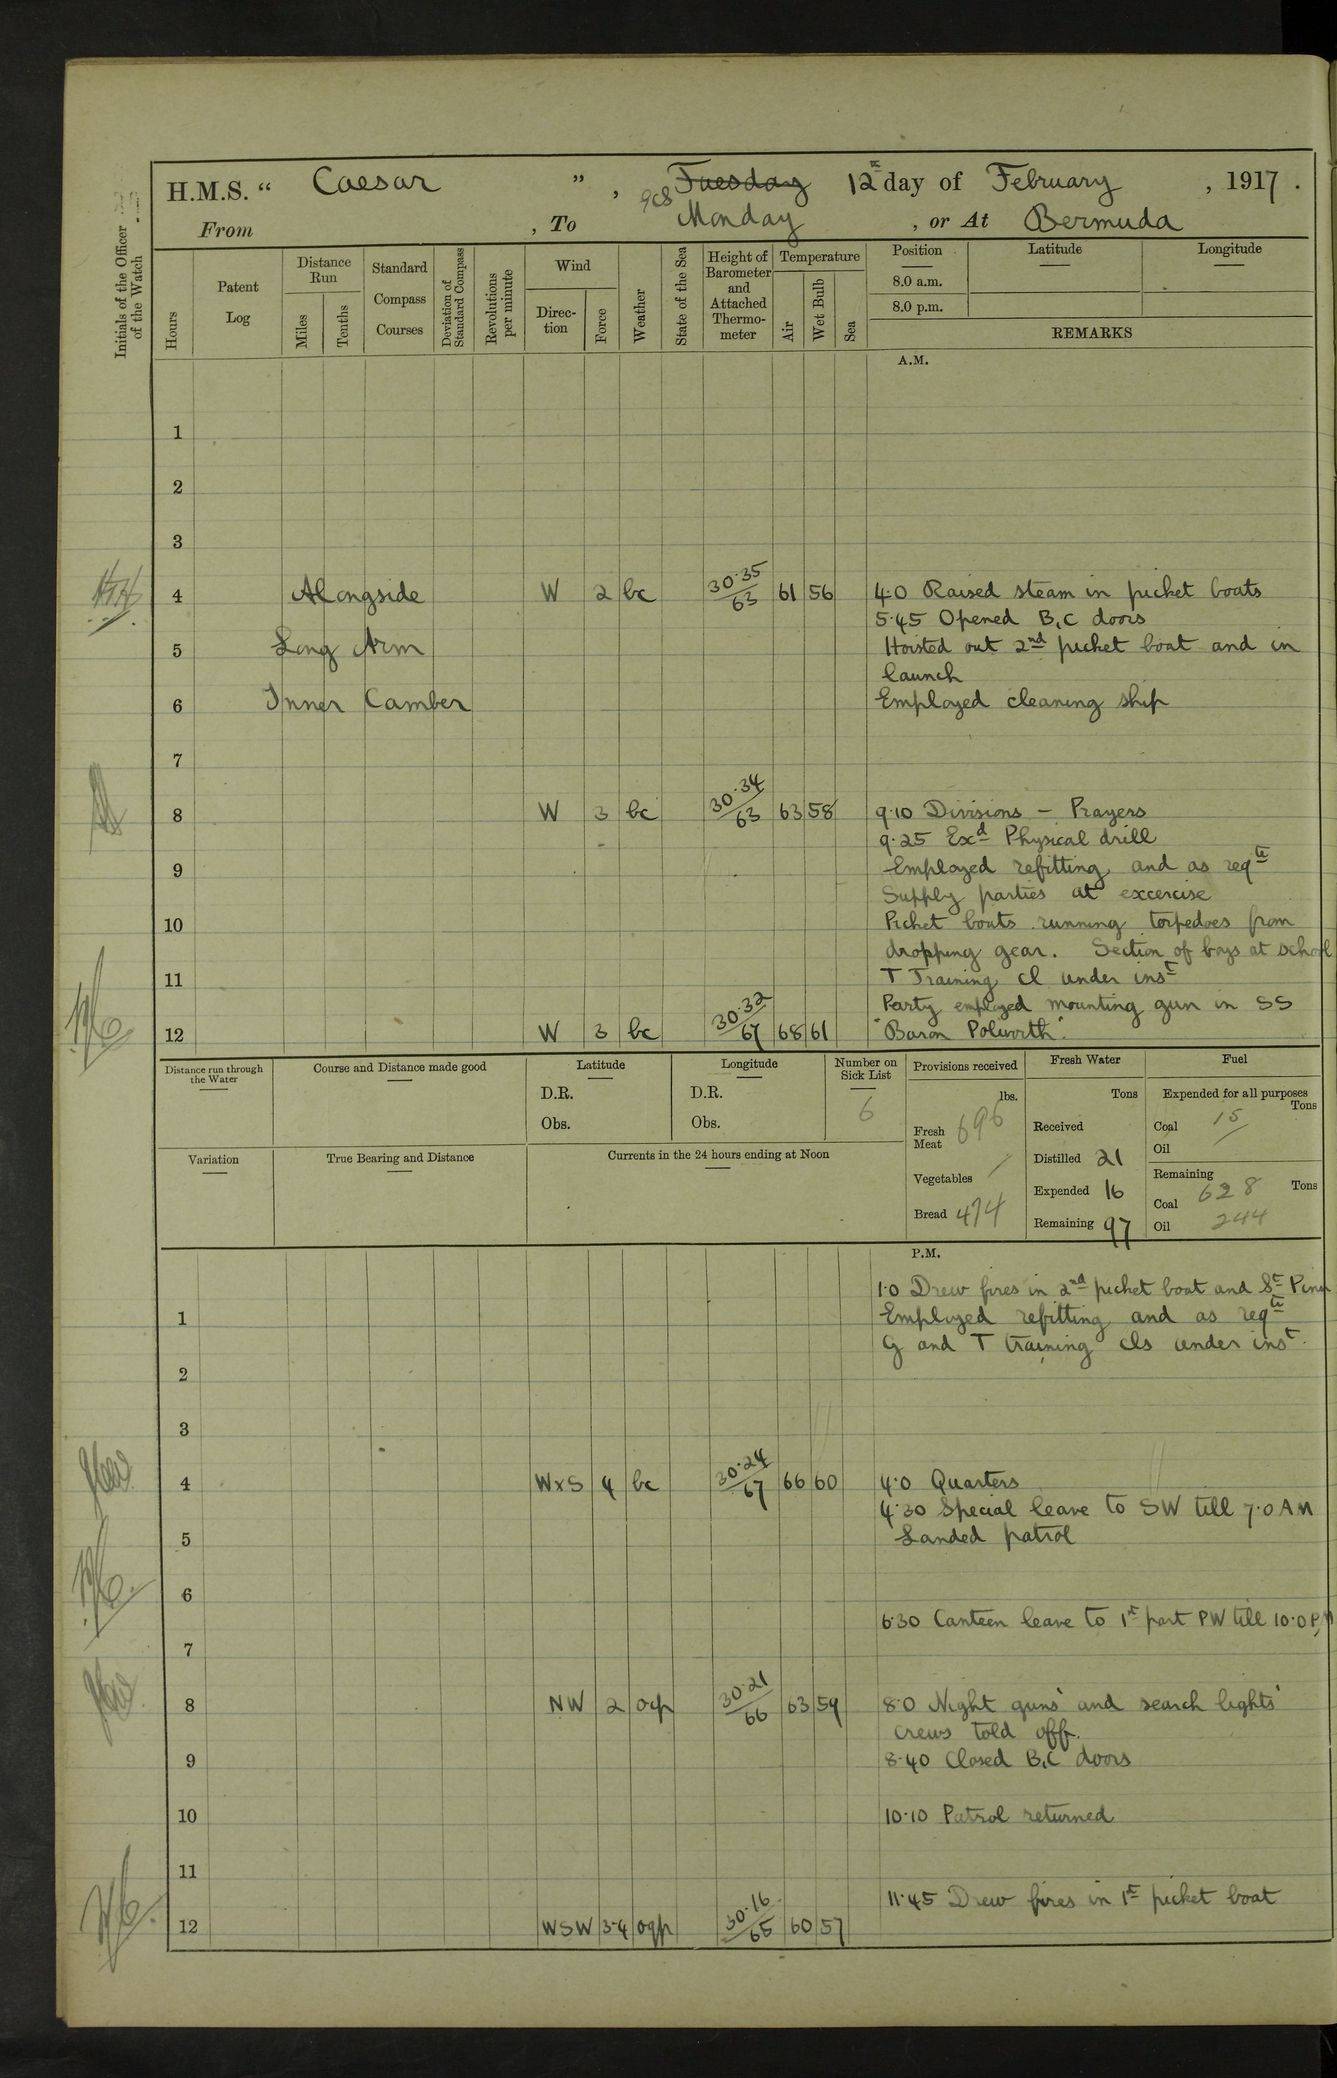 H.M.S. “ Caesar ” , Tuesday 12th day of February , 1917 .
Monday
From , To , or At Bermuda
Initials of the Officer of the Watch
Hours
Patent Log
Distance Run
Miles
Tenths
Standard Compass Courses
Deviation of Standard Compass
Revolutions per minute
Wind
Direc-tion
Force
Weather
State of the Sea
Height of Barometer and Attached Thermo-meter
Temperature
Air
Wet Bulb
Sea
Position
8.0 a.m.
8.0 p.m.
Latitude
Longitude
REMARKS
A.M.
1
2
3
4 Alongside W 2 bc 30.35/63 61 56 4.0 Raised steam in picket boats
5.45 Opened B,C doors
5 Long Arm Hoisted out 2nd picket boat and in
launch
6 Inner Camber Employed cleaning ship
7
8 W 3 bc 30.34/63 63 58 9.10 Divisions – Prayers
9.25 Exd Physical drill
9 Employed refitting and as reqte
Supply parties at excercise
10 Picket boats running torpedoes from
dropping gear. Section of boys at school
11 T Training cl under inst
Party employed mounting gun in SS
12 W 3 bc 30.32/67 68 61 "Baron Polwarth".
Distance run through the Water
Course and Distance made good
Latitude
D.R.
Obs.
Longitude
D.R.
Obs.
Number on Sick List
6
Provisions received
lbs.
Fresh Meat 696
Vegetables /
Bread 474
Fresh Water
Tons
Received
Distilled 21
Expended 16
Remaining 97
Fuel
Expended for all purposes
Tons
Coal 15
Oil /
Remaining
Tons
Coal 628
Oil 244
Variation
True Bearing and Distance
Currents in the 24 hours ending at Noon
P.M.
1.0 Drew fires in 2nd picket boat and St Pinn
1 Employed refitting and as reqte
G and T training cls under inst.
2
3
4 WxS 4 bc 30.24/67 66 60 4.0 Quarters
4.30 Special leave to SW till 7.0 AM
5 Landed patrol
6
6.30 Canteen leave to 1st part PW till 10.0 PM
7
8 NW 2 ocp 30.21/66 63 59 8.0 Night guns' and search lights'
crews told off.
9 8.40 Closed B,C doors
10 10.10 Patrol returned
11
11.45 Drew fires in 1st picket boat
12 WSW 3-4 oqp 30.16/65 60 57